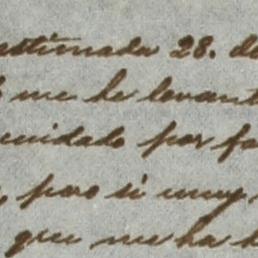 estimada 28. de
me he levant
cuidado por fa
, pero si muy
que me ha